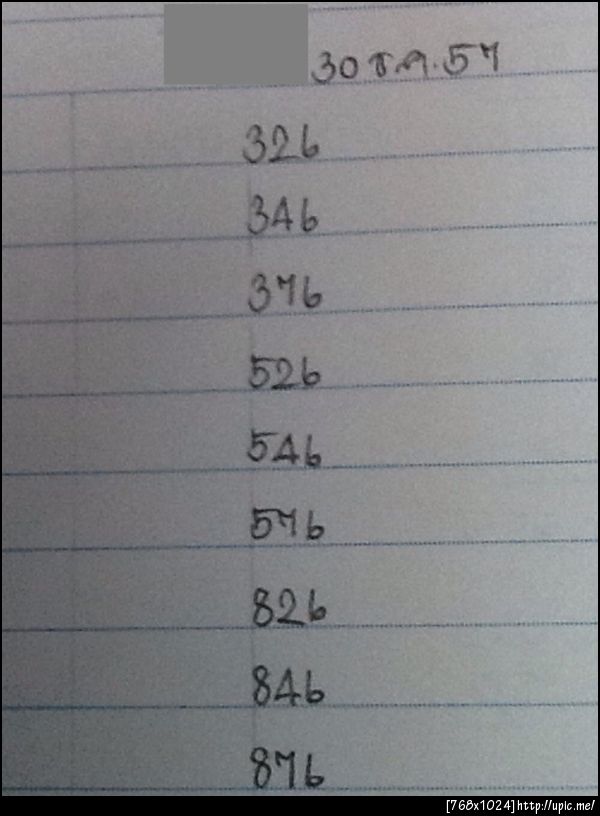 30 ธ.ค. 57
326
346
376
526
546
576
826
846
876
[768x1024]http://upic.me/